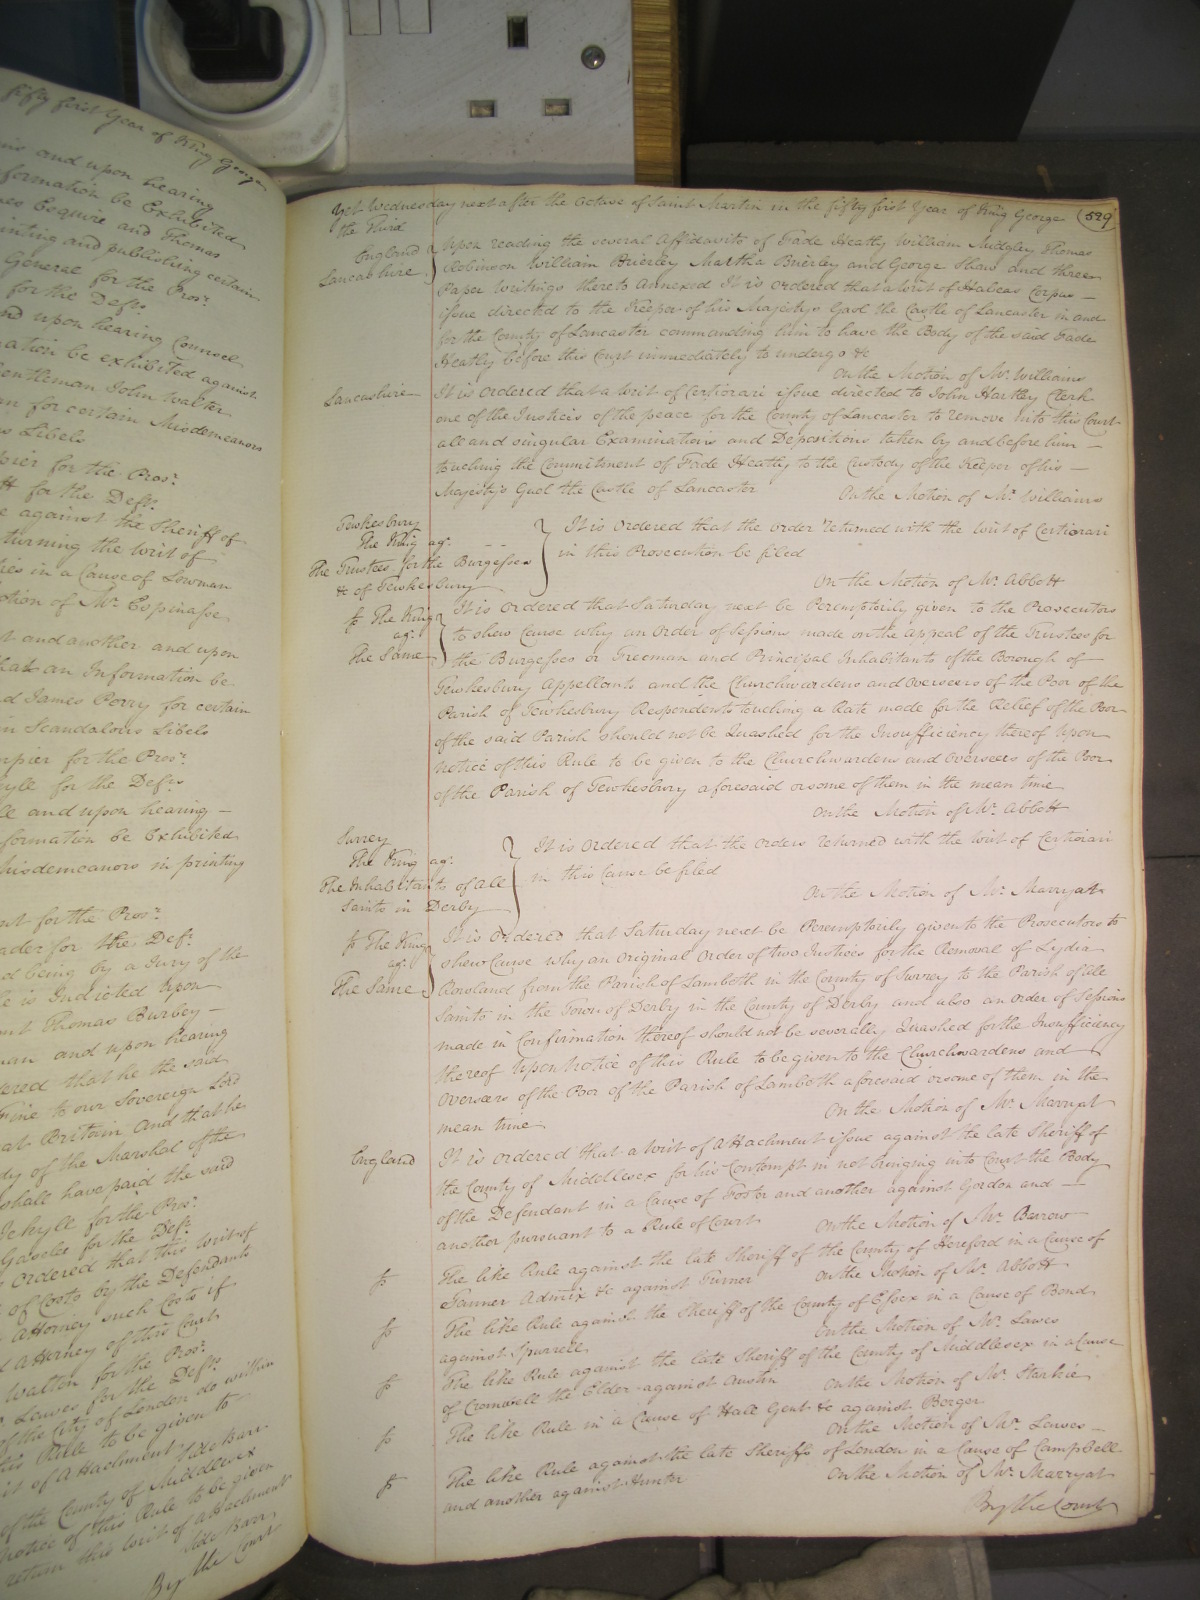 fifty first Year of King George
and upon hearing
formation be Exhibited
Esquire and Thomas
inting and publishing certain
General for the Prosr.
for the Defts.
nd upon hearing Counsel
ation be exhibited against
Gentleman John Walter
for certain Misdemeanors
Libels
pier for the Prosr.
for the Deft.
against the Sheriff of
turning the writ of
in a Cause of Lowman
otion of Mr. Espinasse
and another and upon
that an Information be
d James Perry for certain
in Scandalous Libels
mpier for the Prosr.
kyll for the Defts.
and upon hearing —
formation be Exhibited
Misdemeanors in printing
for the Prosr.
ader for the Deft.
d being by a Jury of the
is Indicted upon
Thomas Burbey —
and upon hearing
dered that he the said
Fine to our Sovereign Lord
at Britain and that he
dy of the Marshal of the
shall have paid the said
Jekyll for the Prosr.
for the Deft.
ordered that this writ of
of Costs by the Defendants
Attorney such Costs if
Attorney of this Court
Walton for the Prosr.
Lawes for the Defts.
of the City of London do within
this Rule to be given to
it of Attachment Side Barr
of the County of Middlesex
notice of this Rule to be given
return this writ of Attachment
Side Barr
By the Court
Yet Wednesday next after the Octave of Saint Martin in the fifty first Year of King George 529
the Third
England
Lancashire
Upon reading the several Affidavits of Fade Heatly William Midgley Thomas
Robinson William Brierley Martha Brierley and George Shaw and three
Paper Writings thereto Annexed It is ordered that a writ of Habeas Corpus —
issue directed to the Keeper of his Majestys Gaol the Castle of Lancaster in and
for the County of Lancaster commanding him to have the Body of the said Fade
Heatly before this Court immediately to undergo &c
On the Motion of Mr. Williams
Lancashire
It is Ordered that a writ of Certiorari issue directed to John Hartley Clerk
one of the Justices of the peace for the County of Lancaster to remove into this Court
all and singular Examinations and Depositions taken by and before him —
touching the Commitment of Fade Heatly to the Custody of the Keeper of his —
Majestys Gaol the Castle of Lancaster On the Motion of Mr. Williams
Tewkesbury
The King agt.
The Trustees for the Burgesses
&c of Tewkesbury
It is Ordered that the order returned with the writ of Certiorari
in this Prosecution be filed
On the Motion of Mr. Abbott
The King
agt.
The Same
It is Ordered that Saturday next be Peremptorily given to the Prosecutors
to shew Cause why an Order of Sessions made on the appeal of the Trustees for
the Burgesses or Freeman and Principal Inhabitants of the Borough of
Tewkesbury Appellants and the Churchwardens and Overseers of the Poor of the
Parish of Tewkesbury Respondents touching a Rate made for the Relief of the Poor
of the said Parish should not be Quashed for the Insufficiency thereof Upon
notice of this Rule to be given to the Churchwardens and Overseers of the Poor
of the Parish of Tewkesbury aforesaid or some of them in the mean time
On the Motion of Mr. Abbott
Surrey
The King agt.
The Inhabitants of all
Saints in Derby
It is Ordered that the Orders returned with the writ of Certiorari
in this Cause be filed
On the Motion of Mr. Marryat
The King
agt.
The Same
It is Ordered that Saturday next be Peremptorily given to the Prosecutors to
shew Cause why an Original Order of two Justices for the Removal of Lydia
Rowland from the Parish of Lambeth in the County of Surrey to the Parish of all
Saints in the Town of Derby in the County of Derby and also an order of Sessions
made in Confirmation thereof should not be severally Quashed for the Insufficiency
thereof Upon Notice of this Rule to be given to the Churchwardens and
Overseers of the Poor of the Parish of Lambeth aforesaid or some of them in the
mean time On the Motion of Mr. Marryat
England
It is Ordered that a writ of Attachment issue against the late Sheriff of
the County of Middlesex for his Contempt in not bringing into Court the Body
of the Defendant in a Cause of Foster and another against Gordon and —
another pursuant to a Rule of Court On the Motion of Mr. Barrow
The like Rule against the late Sheriff of the County of Hereford in a Cause of
Tanner Admix &c against Turner On the Motion of Mr. Abbott
The like Rule against the Sheriff of the County of Essex in a Cause of Bond
against Spurrell On the Motion of Mr. Lawes
The like Rule against the late Sheriff of the County of Middlesex in a Cause
of Cromwell the Elder against Austin On the Motion of Mr. Starkie
The like Rule in a Cause of Hall Gent &c against Berger
On the Motion of Mr. Lawes —
The like Rule against the late Sheriffs of London in a Cause of Campbell
and another against Hunter On the Motion of Mr. Marryat
By the Court